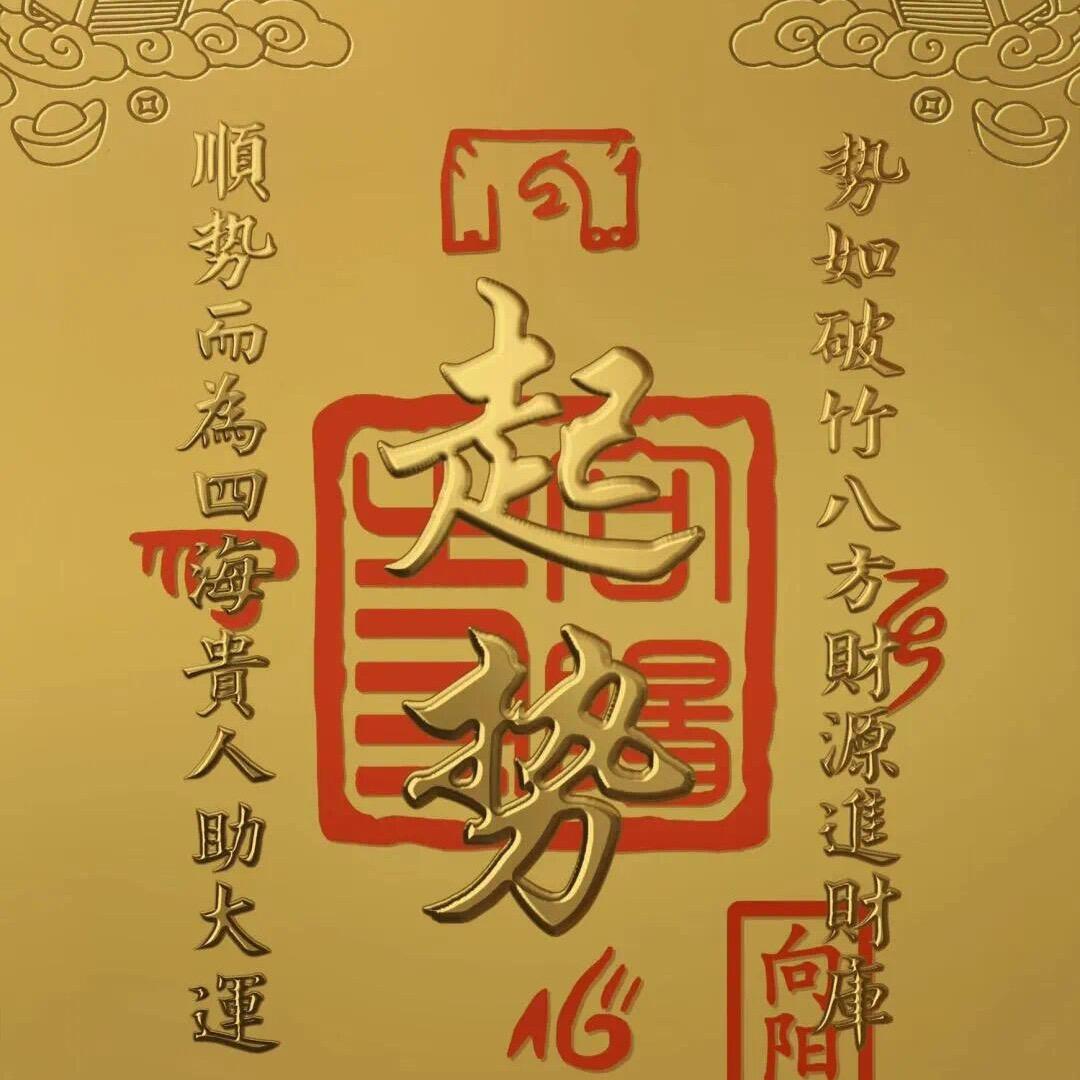 势如破竹八方財源進財庫
起势
順势而為四海貴人助大運
向阳